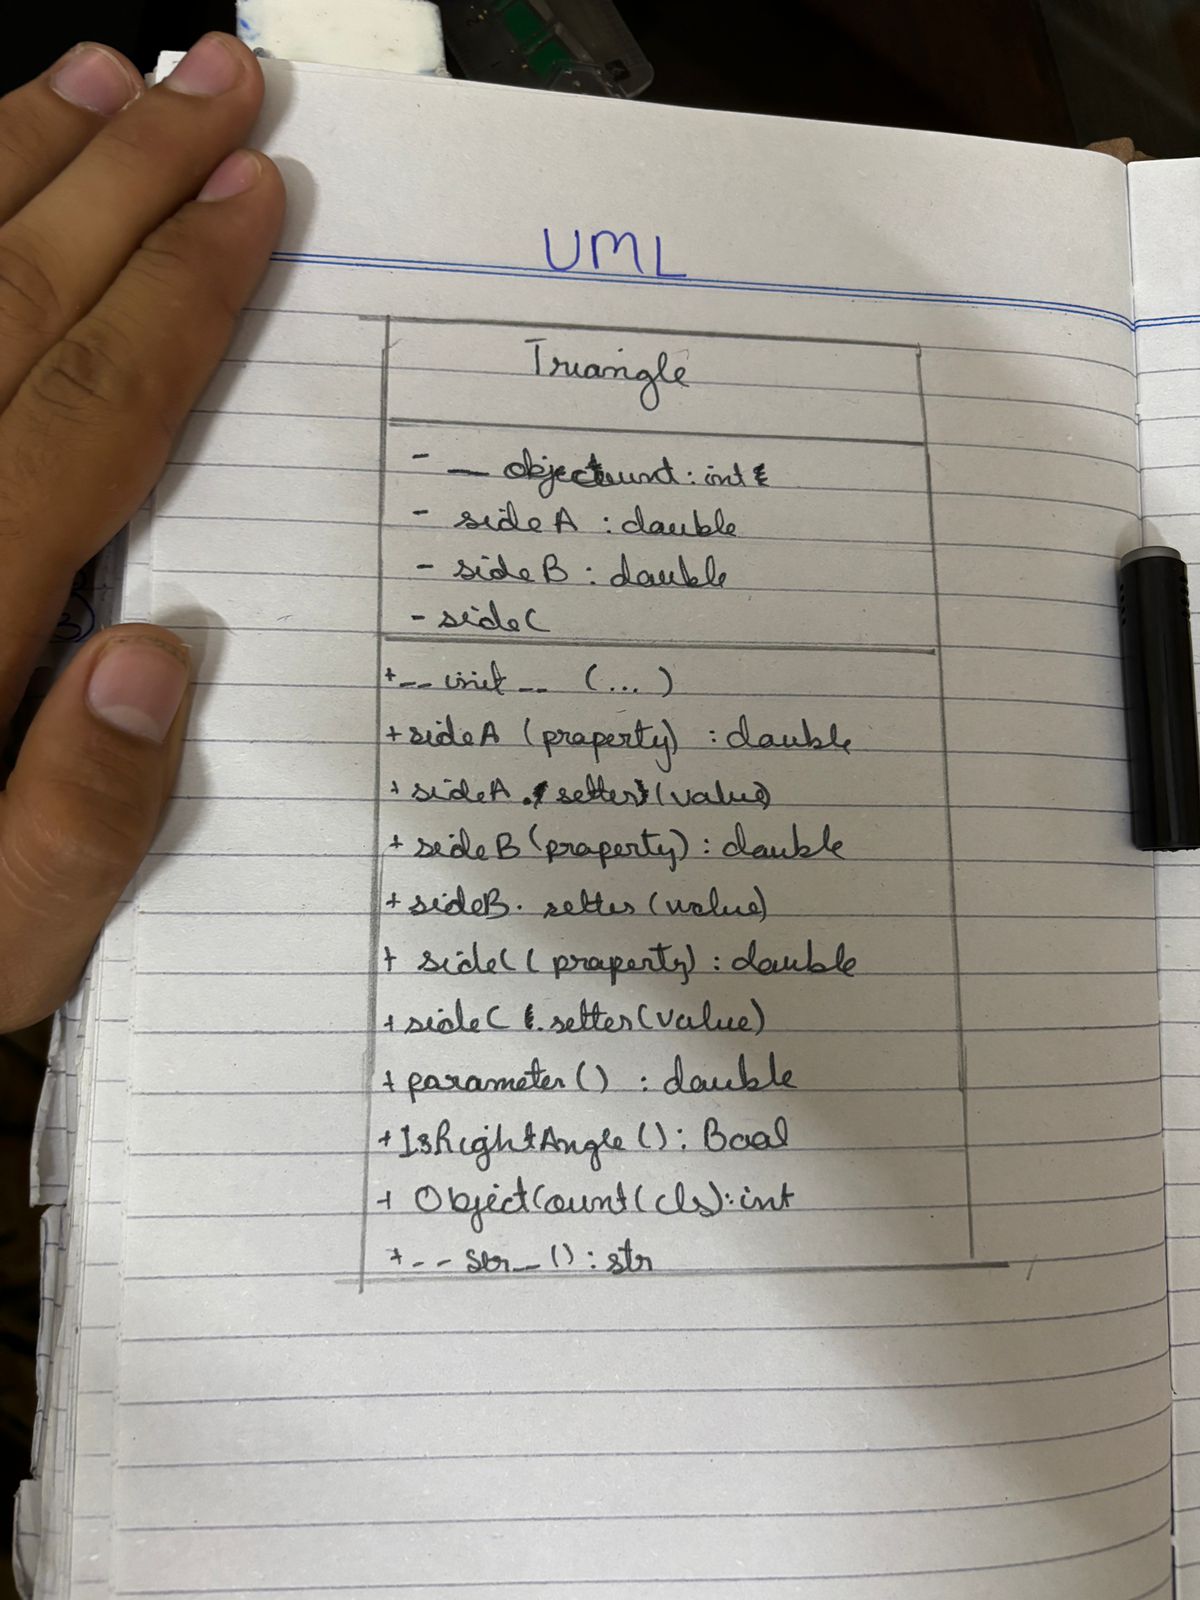 UML
Triangle
- __ objectount : int
- sideA : double
- sideB : double
- sideC
+ __ init __ (...)
+ sideA (property) : double
+ sideA . setter (value)
+ sideB (property) : double
+ sideB . setter (value)
+ sideC (property) : double
+ sideC . setter (value)
+ parameter() : double
+ IsRightAngle() : Bool
+ ObjectCount(cls) : int
+ -- str __ () : str